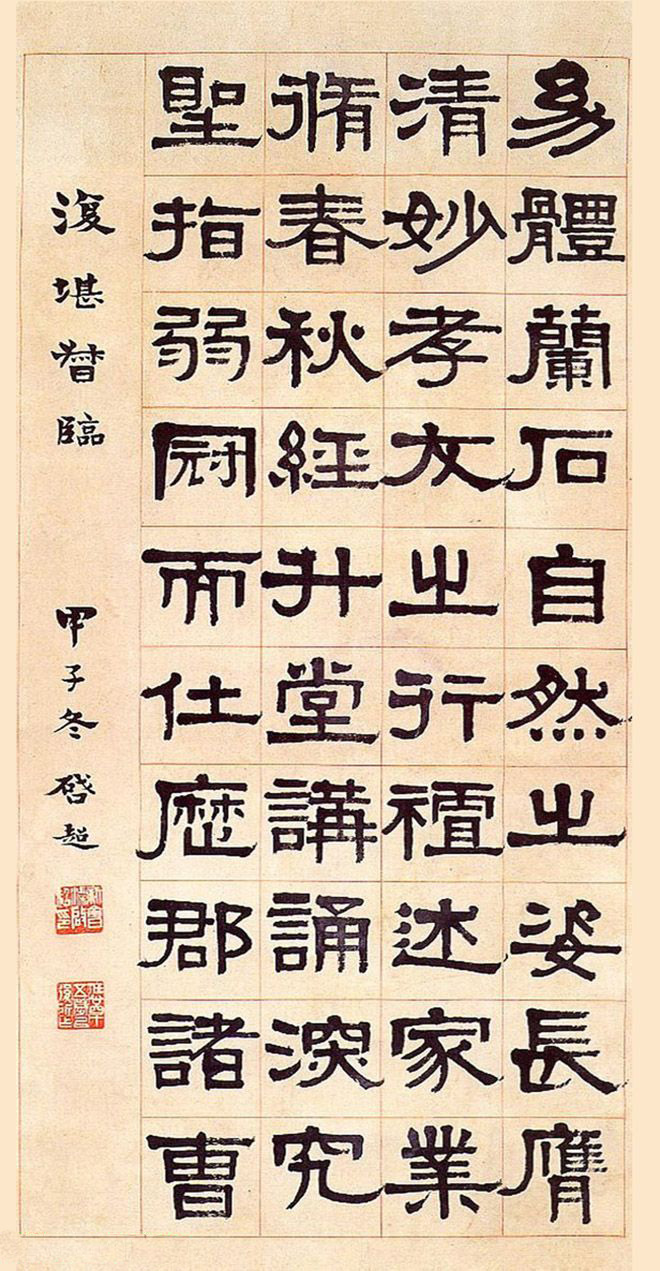 幼體蘭石自然之姿長膺
清妙孝友之行禪述家業
脩春秋經升堂講誦深究
聖指弱冠而仕歷郡諸曹
復堪督臨 甲子冬啓超